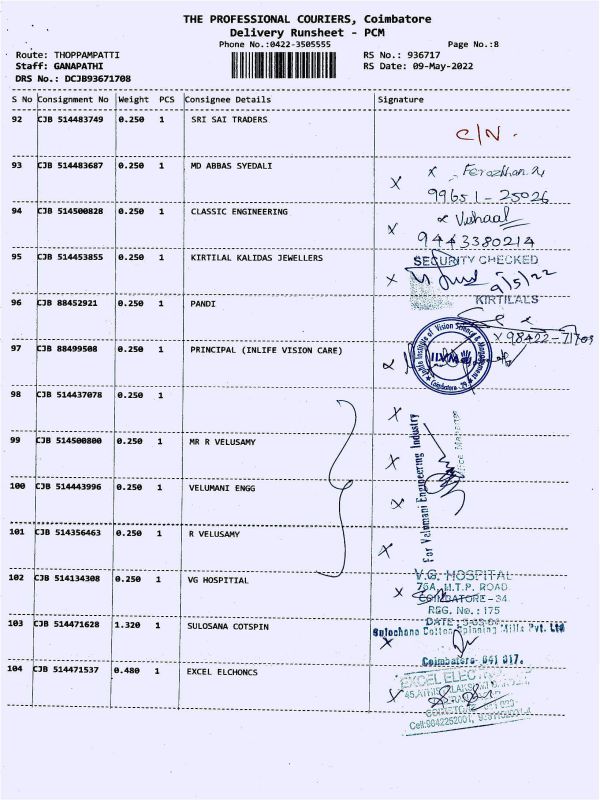 THE PROFESSIONAL COURIERS, Coimbatore
Delivery Runsheet - PCM
Phone No.:0422-3505555 Page No.:8
Route: THOPPAMPATTI RS No.: 936717
Staff: GANAPATHI RS Date: 09-May-2022
DRS No.: DCJB93671708
S No Consignment No Weight PCS Consignee Details Signature
92 CJB 514483749 0.250 1 SRI SAI TRADERS C/N.
93 CJB 514483687 0.250 1 MD ABBAS SYEDALI X
99651-25026
94 CJB 514500828 0.250 1 CLASSIC ENGINEERING X Vishaal
9443380214
95 CJB 514453855 0.250 1 KIRTILAL KALIDAS JEWELLERS X SECURITY CHECKED
9/5/22
KIRTILALS
96 CJB 88452921 0.250 1 PANDI
X 98422-71703
97 CJB 88499508 0.250 1 PRINCIPAL (INLIFE VISION CARE)
Institute of Vision Science & Management
IIVM
Coimbatore
98 CJB 514437078 0.250 1 X
99 CJB 514500800 0.250 1 MR R VELUSAMY X
100 CJB 514443996 0.250 1 VELUMANI ENGG X
101 CJB 514356463 0.250 1 R VELUSAMY X
For Velumani Engineering Industry
Office Manager
102 CJB 514134308 0.250 1 VG HOSPITIAL X
V.G. HOSPITAL
M.T.P. ROAD
COIMBATORE - 34
REG. No.: 175
DATE:
103 CJB 514471628 1.320 1 SULOSANA COTSPIN X
Sulochana Cotton Spinning Mills Pvt. Ltd
Coimbatore- 641 017.
104 CJB 514471537 0.480 1 EXCEL ELCHONCS X
EXCEL
Cell:9842252001,